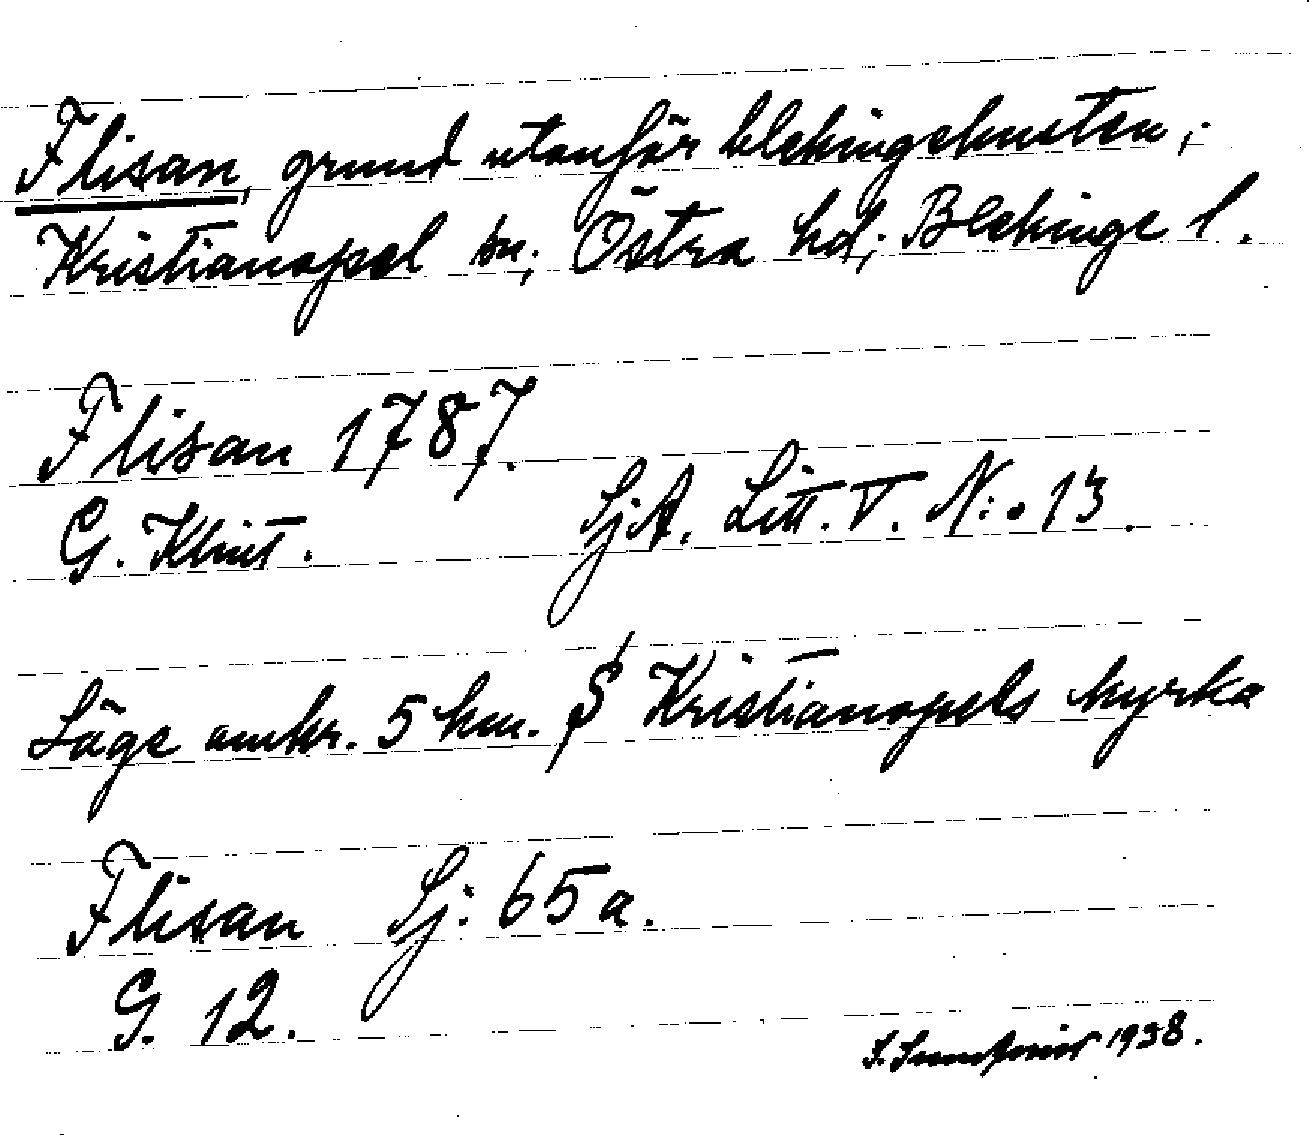 Flisan, grund utanför blekingekusten;
Kristianopel sn; Östra hd; Blekinge l.
Flisan 1787.
G. Klint. SjA. Litt. V. N:o 13.
Läge omkr. 5 km. S Kristianopels kyrka
Flisan Sj: 65a.
G. 12.
1938.